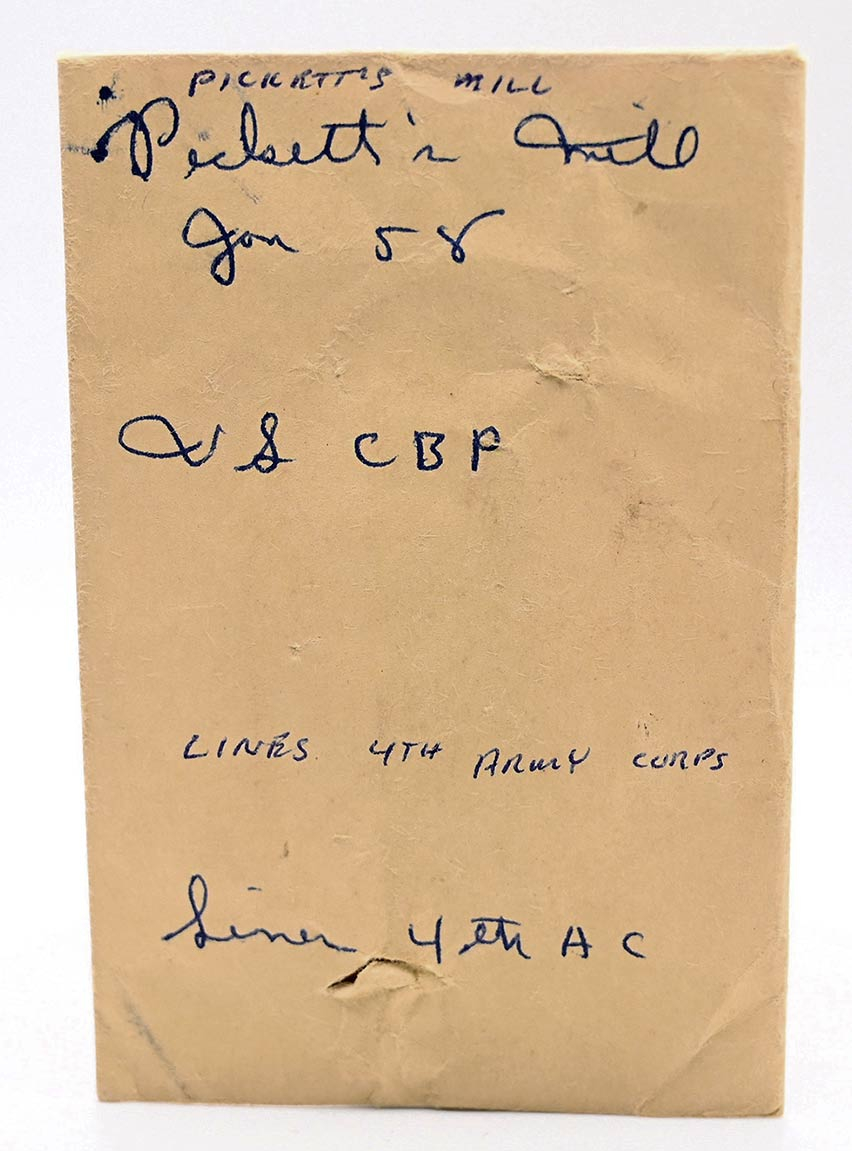 PICKETT'S MILL
Pickett's Mill
Jan 58
US CBP
LINES 4TH ARMY CORPS
Lines 4th A C